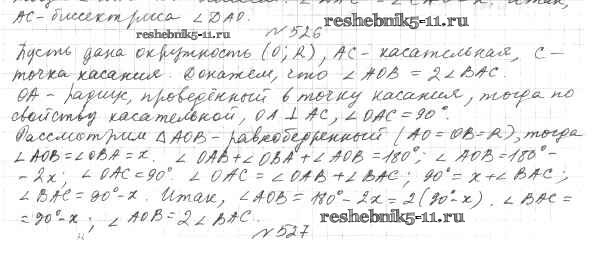 AC - биссектриса ∠DAO.
reshebnik5-11.ru
№ 526
reshebnik5-11.ru
Пусть дана окружность (O; R), AC - касательная, C -
точка касания. Докажем, что ∠AOB = 2∠BAC.
OA - радиус, проведённый в точку касания, тогда по
свойству касательной, OA ⊥ AC, ∠OAC = 90°.
Рассмотрим △AOB - равнобедренный (AO = OB = R), тогда
∠AOB = ∠OBA = x. ∠OAB + ∠OBA + ∠AOB = 180°; ∠AOB = 180° -
- 2x; ∠OAC = 90°. ∠OAC = ∠OAB + ∠BAC; 90° = x + ∠BAC;
∠BAC = 90° - x. Итак, ∠AOB = 180° - 2x = 2(90° - x). ∠BAC =
= 90° - x; ∠AOB = 2∠BAC.
reshebnik5-11.ru
№ 527